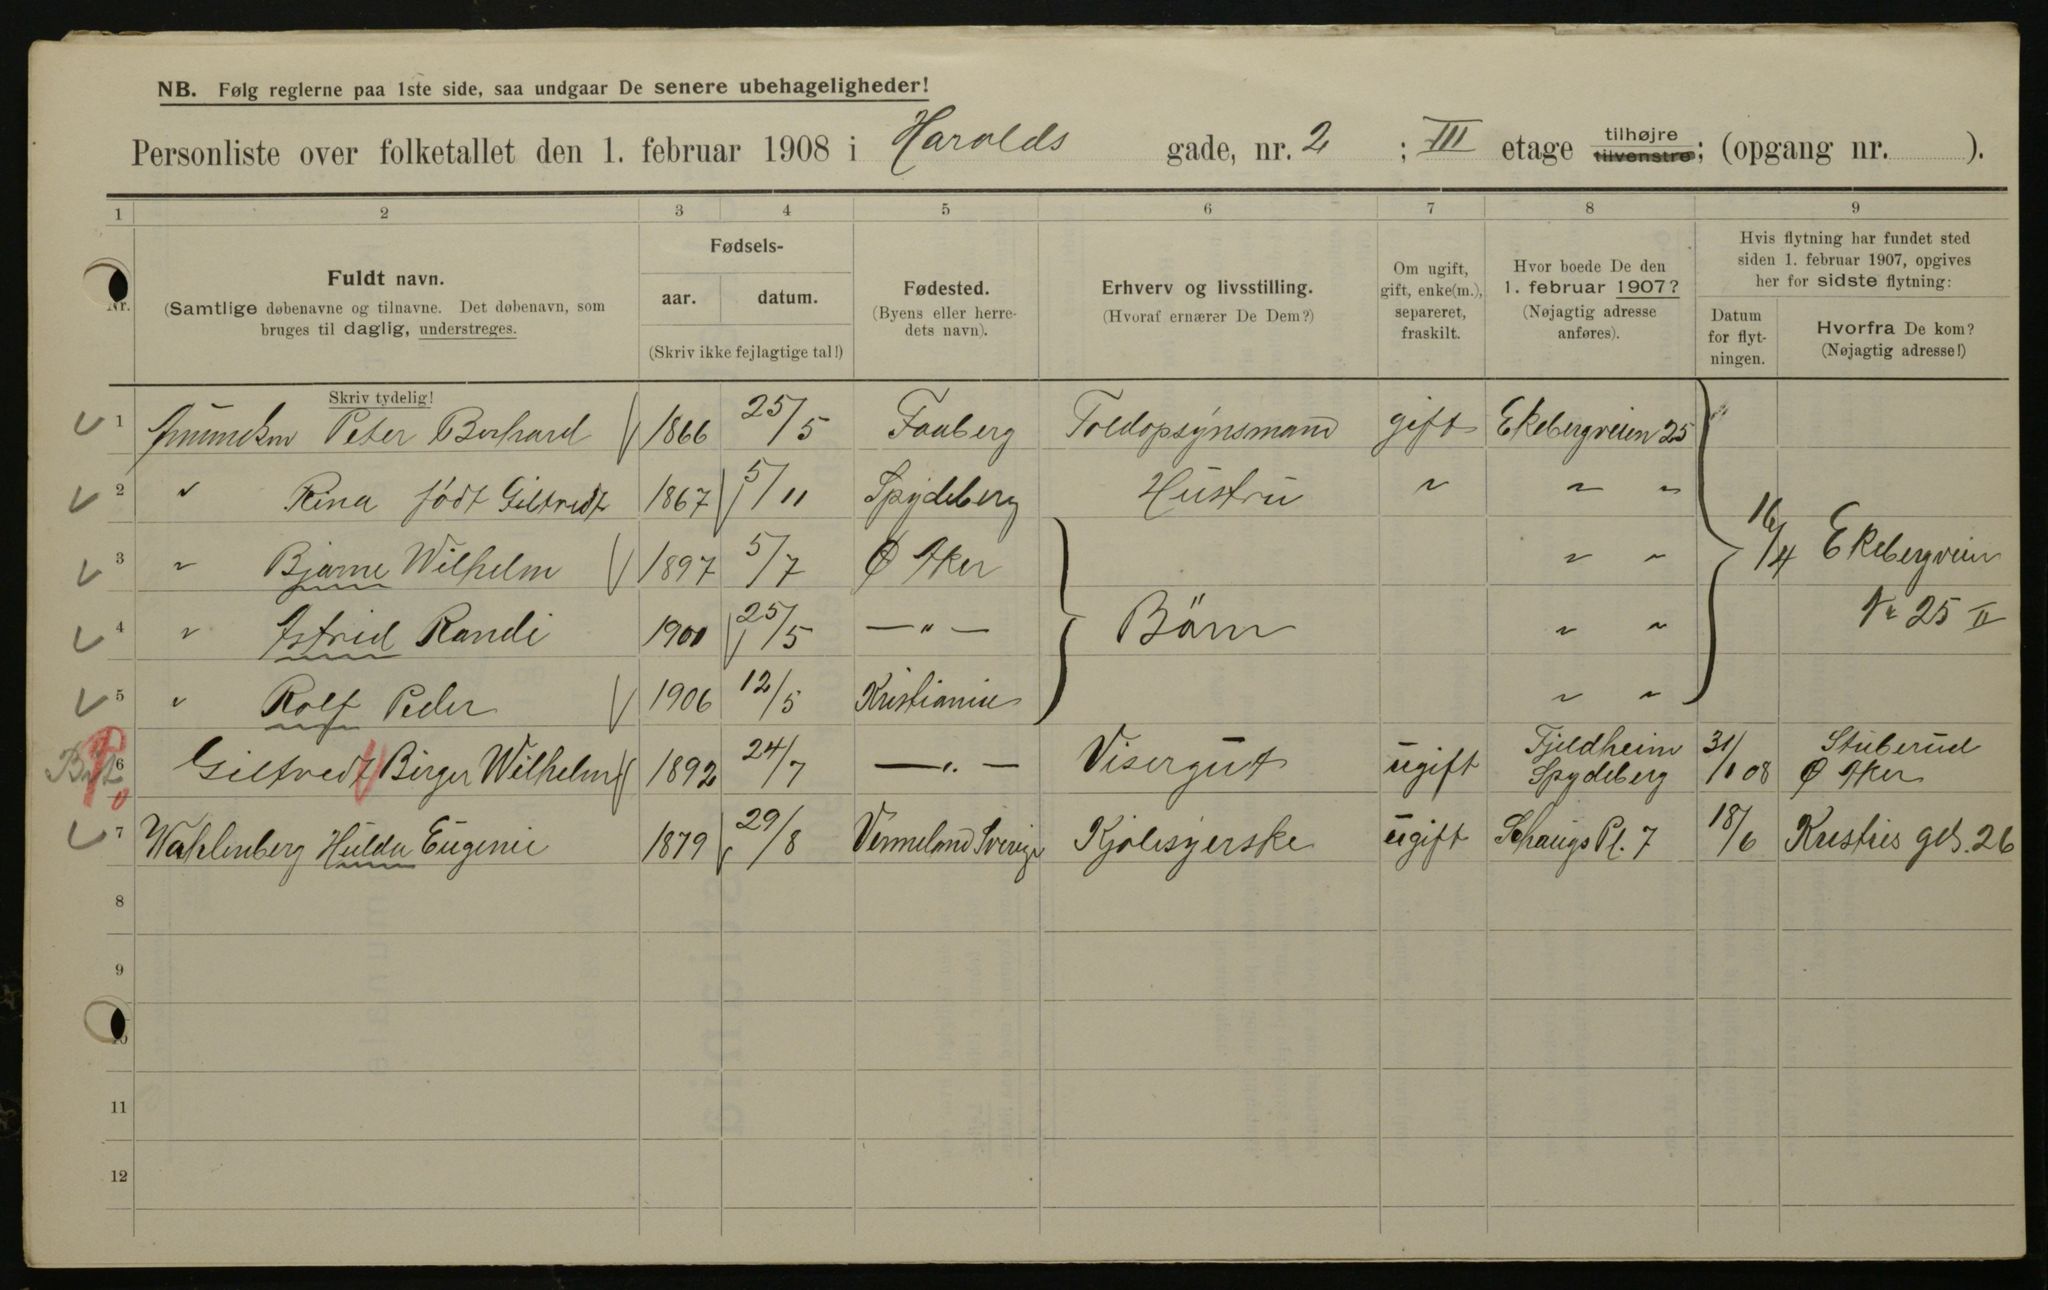 NB. Følg reglerne paa 1ste side, saa undgaar De senere ubehageligheder!
Personliste over folketallet den 1. februar 1908 i Harolds gade, nr. 2 ; III etage tilhøjre tilvenstre; (opgang nr. ).
1 2 3 4 5 6 7 8 9
Nr.
Fuldt navn.
(Samtlige døbenavne og tilnavne. Det døbenavn, som
bruges til daglig, understreges.
Skriv tydelig!
Fødsels-
aar. datum.
(Skriv ikke fejlagtige tal!)
Fødested.
(Byens eller herre-
dets navn).
Erhverv og livsstilling.
(Hvoraf ernærer De Dem?)
Om ugift,
gift, enke(m.),
separeret,
fraskilt.
Hvor boede De den
1. februar 1907?
(Nøjagtig adresse
anføres).
Hvis flytning har fundet sted
siden 1. februar 1907, opgives
her for sidste flytning:
Datum
for flyt-
ningen.
Hvorfra De kom?
(Nøjagtig adresse!)
1 Peter 1866 25/5 Faaberg Toldopsynsmand gift Ekebergveien 25
2 " Rina født Giltvedt 1867 5/11 Spydeberg Hustru " " "
3 " Bjarne Wilhelm 1897 5/7 Ø Aker " " 16/4 Ekebergveien
4 " Astrid Randi 1900 25/5 — " — Börn " " Nr 25 II
5 " Rolf Peder 1906 12/5 Kristiania " "
6 Giltvedt Birger Wilhelm 1892 24/7 — " — Visergut ugift Fjeldheim Spydeberg 31/1 08 Stuberud Ø Aker
7 Wahlenberg Hulda Eugenie 1879 29/8 Vermeland Sverige Kjolesyerske ugift Schaugs Pl. 7 18/6 26
8
9
10
11
12